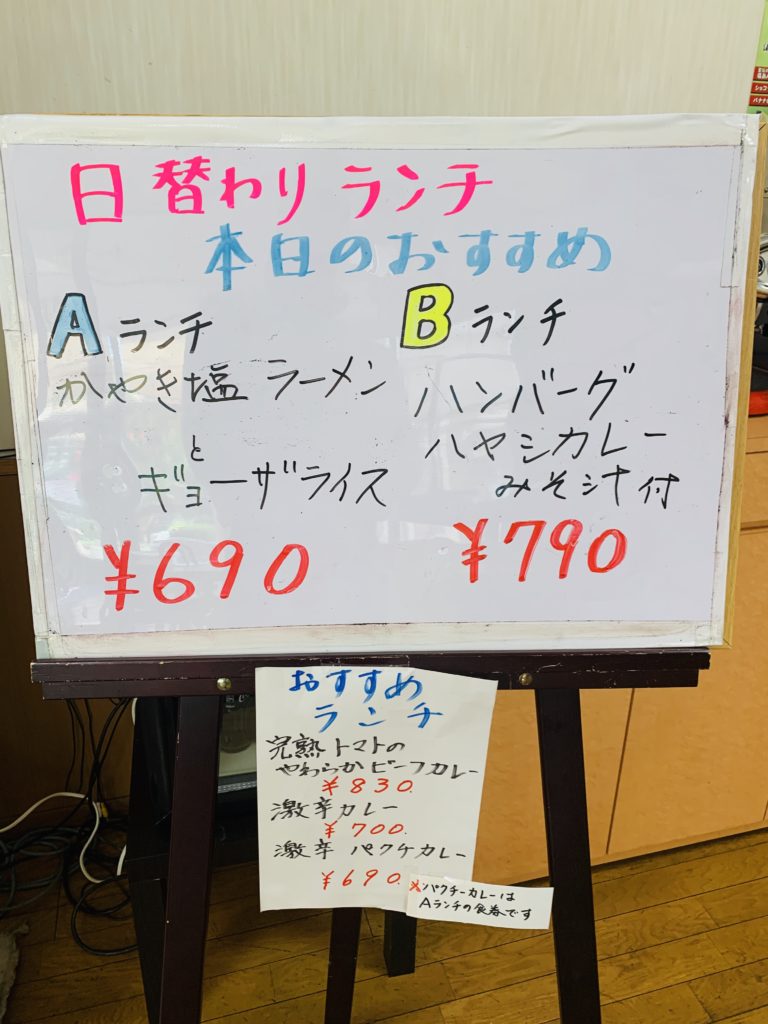 日替わりランチ
本日のおすすめ
Aランチ
かやき塩ラーメン
と
ギョーザライス
¥690
Bランチ
ハンバーグ
ハヤシカレー
みそ汁付
¥790
おすすめ
ランチ
完熟トマトの
やわらかビーフカレー
¥830.
激辛カレー
¥700.
激辛パクチカレー
¥690.
※パクチーカレーは
Aランチの食券です